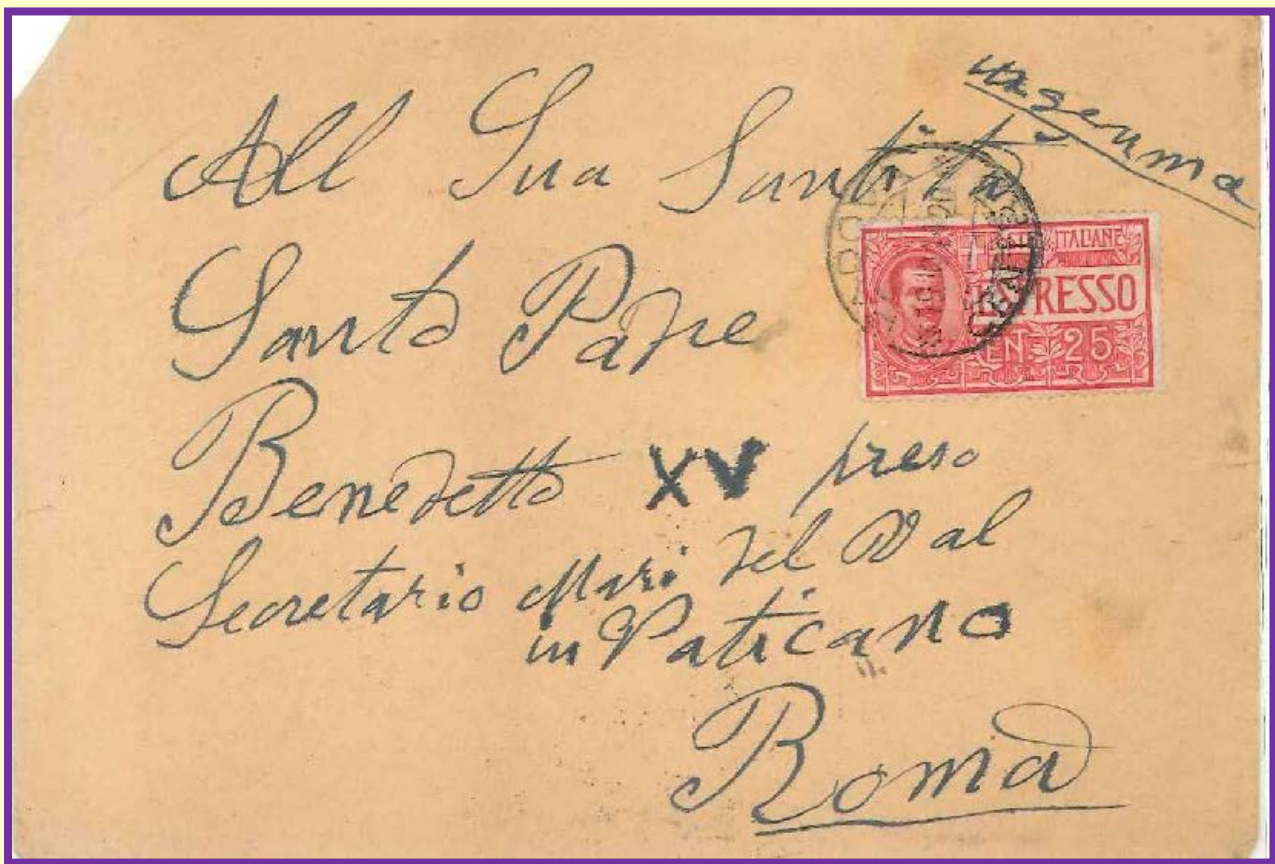 urgenma
All Sua Santita
Santo Padre
Benedetto XV preso
Secretario Mari del Val
in Vaticano
Roma
ITALIANE
ESPRESSO
CEN. 25